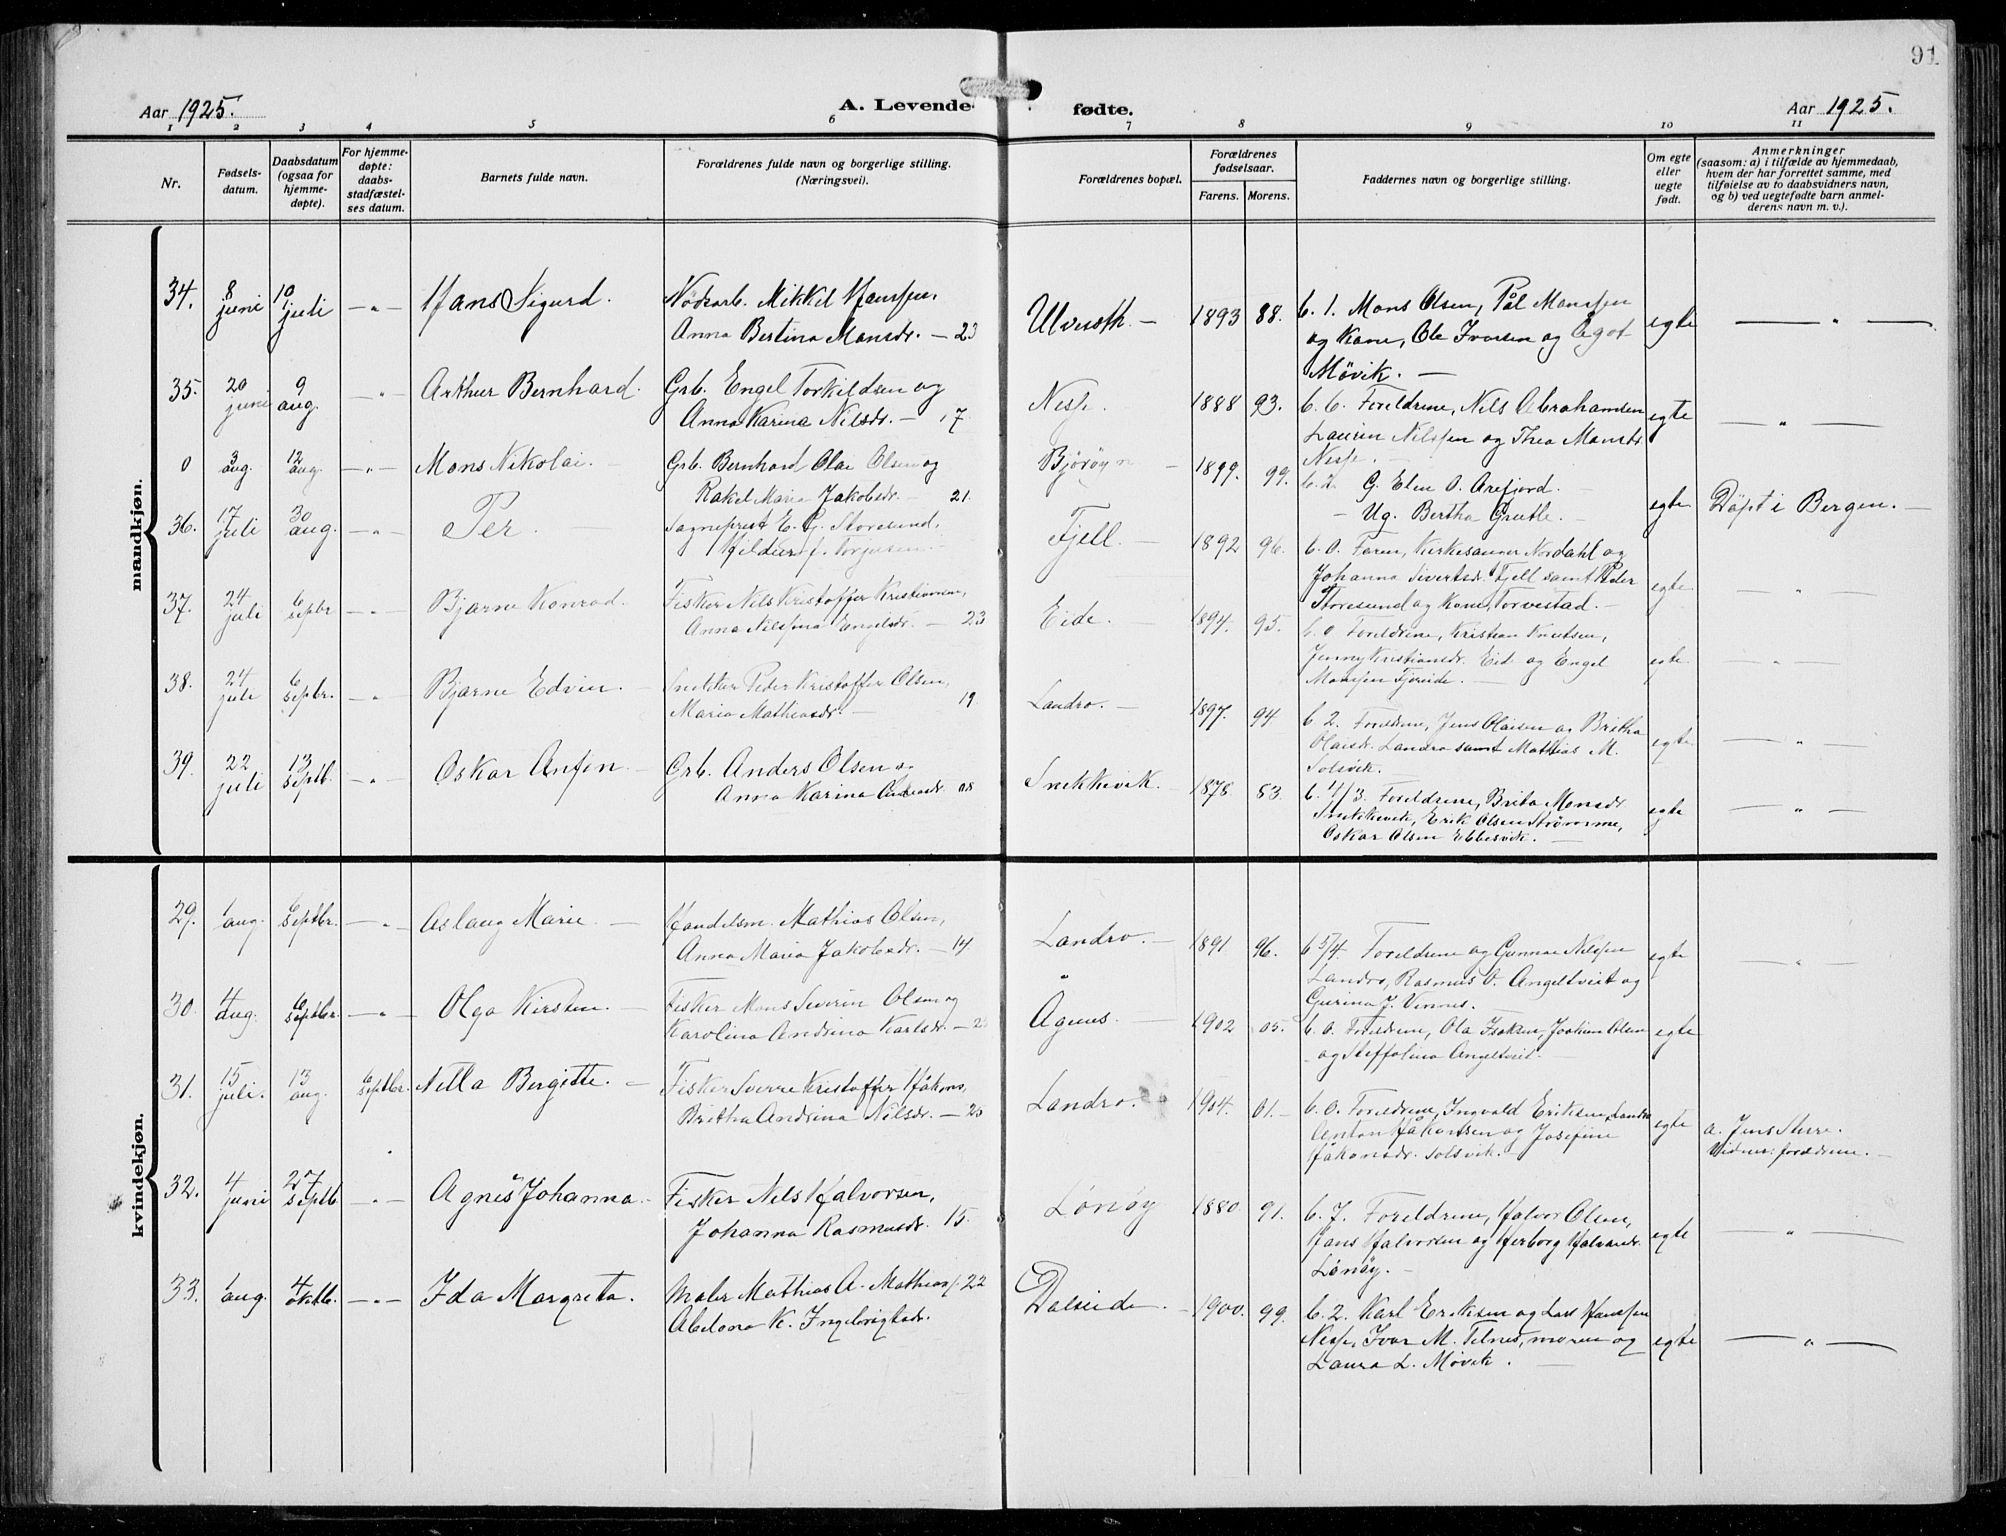 91
Aar 1925.
A. Levende fødte.
Aar 1925.
1 2 3 4 5 6 7 8 9 10 11
Nr.
Fødsels-
datum.
Daabsdatum
(ogsaa for
hjemme-
døpte).
For hjemme-
døpte:
daabs-
stadfæstel-
ses datum.
Barnets fulde navn.
Forældrenes fulde navn og borgerlige stilling.
(Næringsvei).
Forældrenes bopæl.
Forældrenes
fødselsaar.
Farens. Morens.
Faddernes navn og borgerlige stilling.
Om egte
eller
uegte
født.
Anmerkninger
(saasom: a) i tilfælde av hjemmedaab,
hvem der har forrettet samme, med
tilføielse av to daabsvidners navn,
og b) ved uegtefødte barn anmel-
derens navn m. v.).
mandkjøn.
34. 8 juni 10 juli — " — Hans Sigurd. Nødsarb. Mikkel Hanssen,
Anna Bertina Monsdr. — 23
Ulveseth. — 1893 88. b. 1. Mons Olsen, Pål Monssen
og Kone, Ole Iversen og Ågot
Møvik. —
egte — " —
35. 20 juni 9 aug. — " — Arthur Bernhard. Grb. Engel Torkildsen og
Anna Karina Nilsdr. — 17
Nesse. 1888 93. b. 6. Foreldrene, Nils Abrahamsen
Laurin Nilssen og Thea Monsdr.
Nesse. —
egte — " —
0 3 aug. 12 aug. — " — Mons Nikolai. — Grb. Bernhard Olai Olsen og
Rakel Maria Jakobsdr. — 21.
Bjørøyn — 1899. 99. b. 2. G. Elen O. Arefjord. —
— Ug. Bertha Grutle. —
egte Døpt i Bergen. —
36. 17 juli 30 aug. — " — Per. Sogneprest E. G. Storesund,
Hildur f. Torjusen. —
Fjell. — 1892 96. b. 0. Faren, Kirkesanger Nordahl og
Johanna Sivertsdr. Fjell samt Peder
Storesund og Kone, Torvestad. —
egte. — " —
37. 24 juli 6 septbr. — " — Bjarne Konrad. Fisker Nils Kristoffer Kristiansen,
Anna Nilssina Engelsdr. — 23
Eide. — 1894. 95. b. 0 Foreldrene, Kristian Knutsen,
Jenny Kristiansdr. Eide og Engel
Monssen Fjæreide. —
egte — " —
38. 24 juli 6 septbr. — " — Bjarne Edvin. — Snekker Peder Kristoffer Olsen,
Maria Mathiasdr. — 19
Landro. — 1897. 94. b 2. Foreldrene, Jens Olaisen og Britha
Olaisdr. Landro samt Mathias M.
Solsvik. —
egte — " —
39. 22 juli 13 septb. — " — Oskar Anfin. — Grb. Anders Olsen og
Anna Karina 08
Snekkevik. — 1878 83. b. 4/3. Foreldrene, Brita Monsdr
Snekkevik, Erik Olsen Strømme,
Oskar Olsen Ebbesvik. —
egte — " —
kvindekjøn.
29. 1 aug. 6 septbr. — " — Aslaug Marie — Handelsm. Mathias Olsen,
Anna Maria Jakobsdr. — 14
Landro. — 1891 96. b 5/4. Foreldrene og Gunnar Nilssen
Landro, Rasmus O. Angeltveit og
Gurina J. Vinnes.
egte — " —
30. 4 aug. 6 septbr. — " — Olga Kirsten. — Fisker Mons Severin Olsen og
Karolina Andrina Karlsdr. — 25
Ågnes. — 1902 05. b. 0. Foreldrene, Ola Isaksen, Joakim Olsen
og Steffolina Angeltveit. —
egte
31. 15 juli. 13 aug. 6 septbr. Nella Bergitte. — Fisker Sverre Kristoffer Håkons.
Britha Andrina Nilsdr. — 25
Landro. 1904. 01. — b. 0. Foreldrene, Ingvald Eriksen, Landro
Anton Håkonsen og Josefine
Håkonsdr. Solsvik. —
egte a. Jens Sterre.
Vidner: forældrene. —
32. 4 juni 27 septb. — " — Agnes Johanna. — Fisker Nils Halvorsen,
Johanna Rasmusdr. 15.
Lønøy 1880 91. b. 7. Foreldrene, Halvor Olsen,
Hans Halvorsen og Herborg Halvorsdr.
Lønøy. —
egte — " —
33. 1 aug. 4 oktb. — " — Ida Margreta. Maler Mathias A. Mathiass. 22
Abelona K. Ingebrigtsdr.
Dalseide. — 1900. 99. b. 2. Karl Eriksen og Lars Hanssen
Nesse, Ivar M. Telnes, moren og
Laura L. Møvik. —
egte — " —